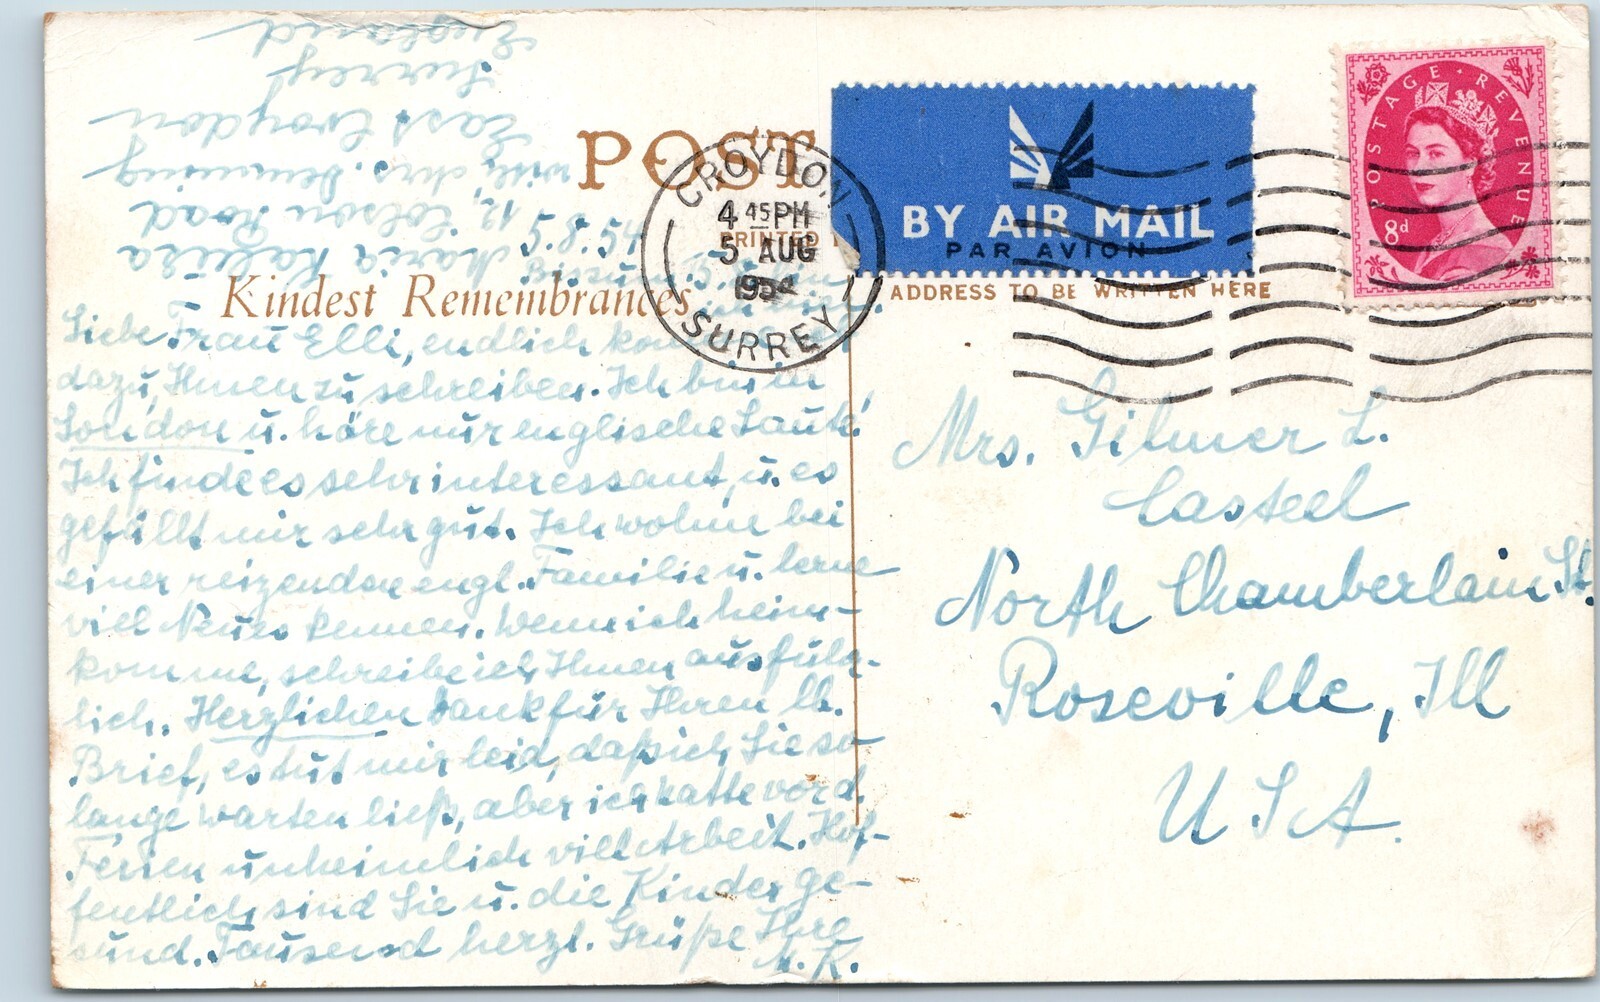 Maria Kaluza
12, Colson Road
with Mrs. Denning
East Croydon
Surrey
England
5.8.54
POST
PRINTED
Kindest Remembrances
Bis zum 15. 8. bin
ich hier.
Liebe Frau Elli, endlich komme ich
dazu, Ihnen zu schreiben. Ich bin in
London u. höre nur englische Laute!
Ich finde es sehr interessant, u. es
gefällt mir sehr gut. Ich wohne bei
einer reizenden engl. Familie u. lerne
viel Neues kennen. Wenn ich heim-
komme, schreibe ich Ihnen ausführ-
lich. Herzlichen Dank für Ihren lb.
Brief, es tut mir leid, daß ich Sie so
lange warten ließ, aber ich hatte vor d.
Ferien unheimlich viel Arbeit. Hof-
fentlich sind Sie u. die Kinder ge-
sund. Tausend herzl. Grüße Ihre
M. K.
CROYDON
4 45 PM
5 AUG
1954
SURREY
BY AIR MAIL
PAR AVION
ADDRESS TO BE WRITTEN HERE
POSTAGE · REVENUE
8d
Mrs. Gilmer L.
Casteel
North Chamberlain St.
Roseville, Ill
USA.